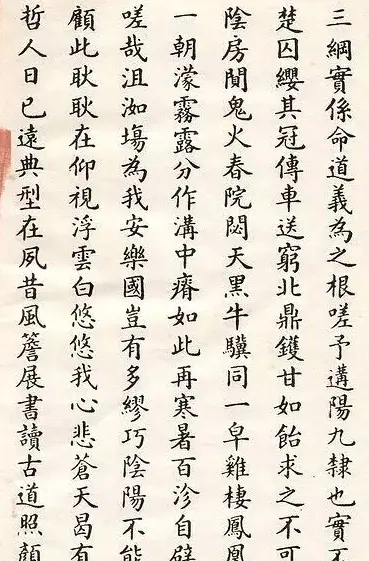 三綱實係命道義為之根嗟予遘陽九隸也實不
楚囚纓其冠傳車送窮北鼎鑊甘如飴求之不可
陰房闃鬼火春院閟天黑牛驥同一皁雞棲鳳凰
一朝濛霧露分作溝中瘠如此再寒暑百沴自辟
嗟哉沮洳塲為我安樂國豈有多繆巧陰陽不能
顧此耿耿在仰視浮雲白悠悠我心悲蒼天曷有
哲人日已遠典型在夙昔風簷展書讀古道照顏